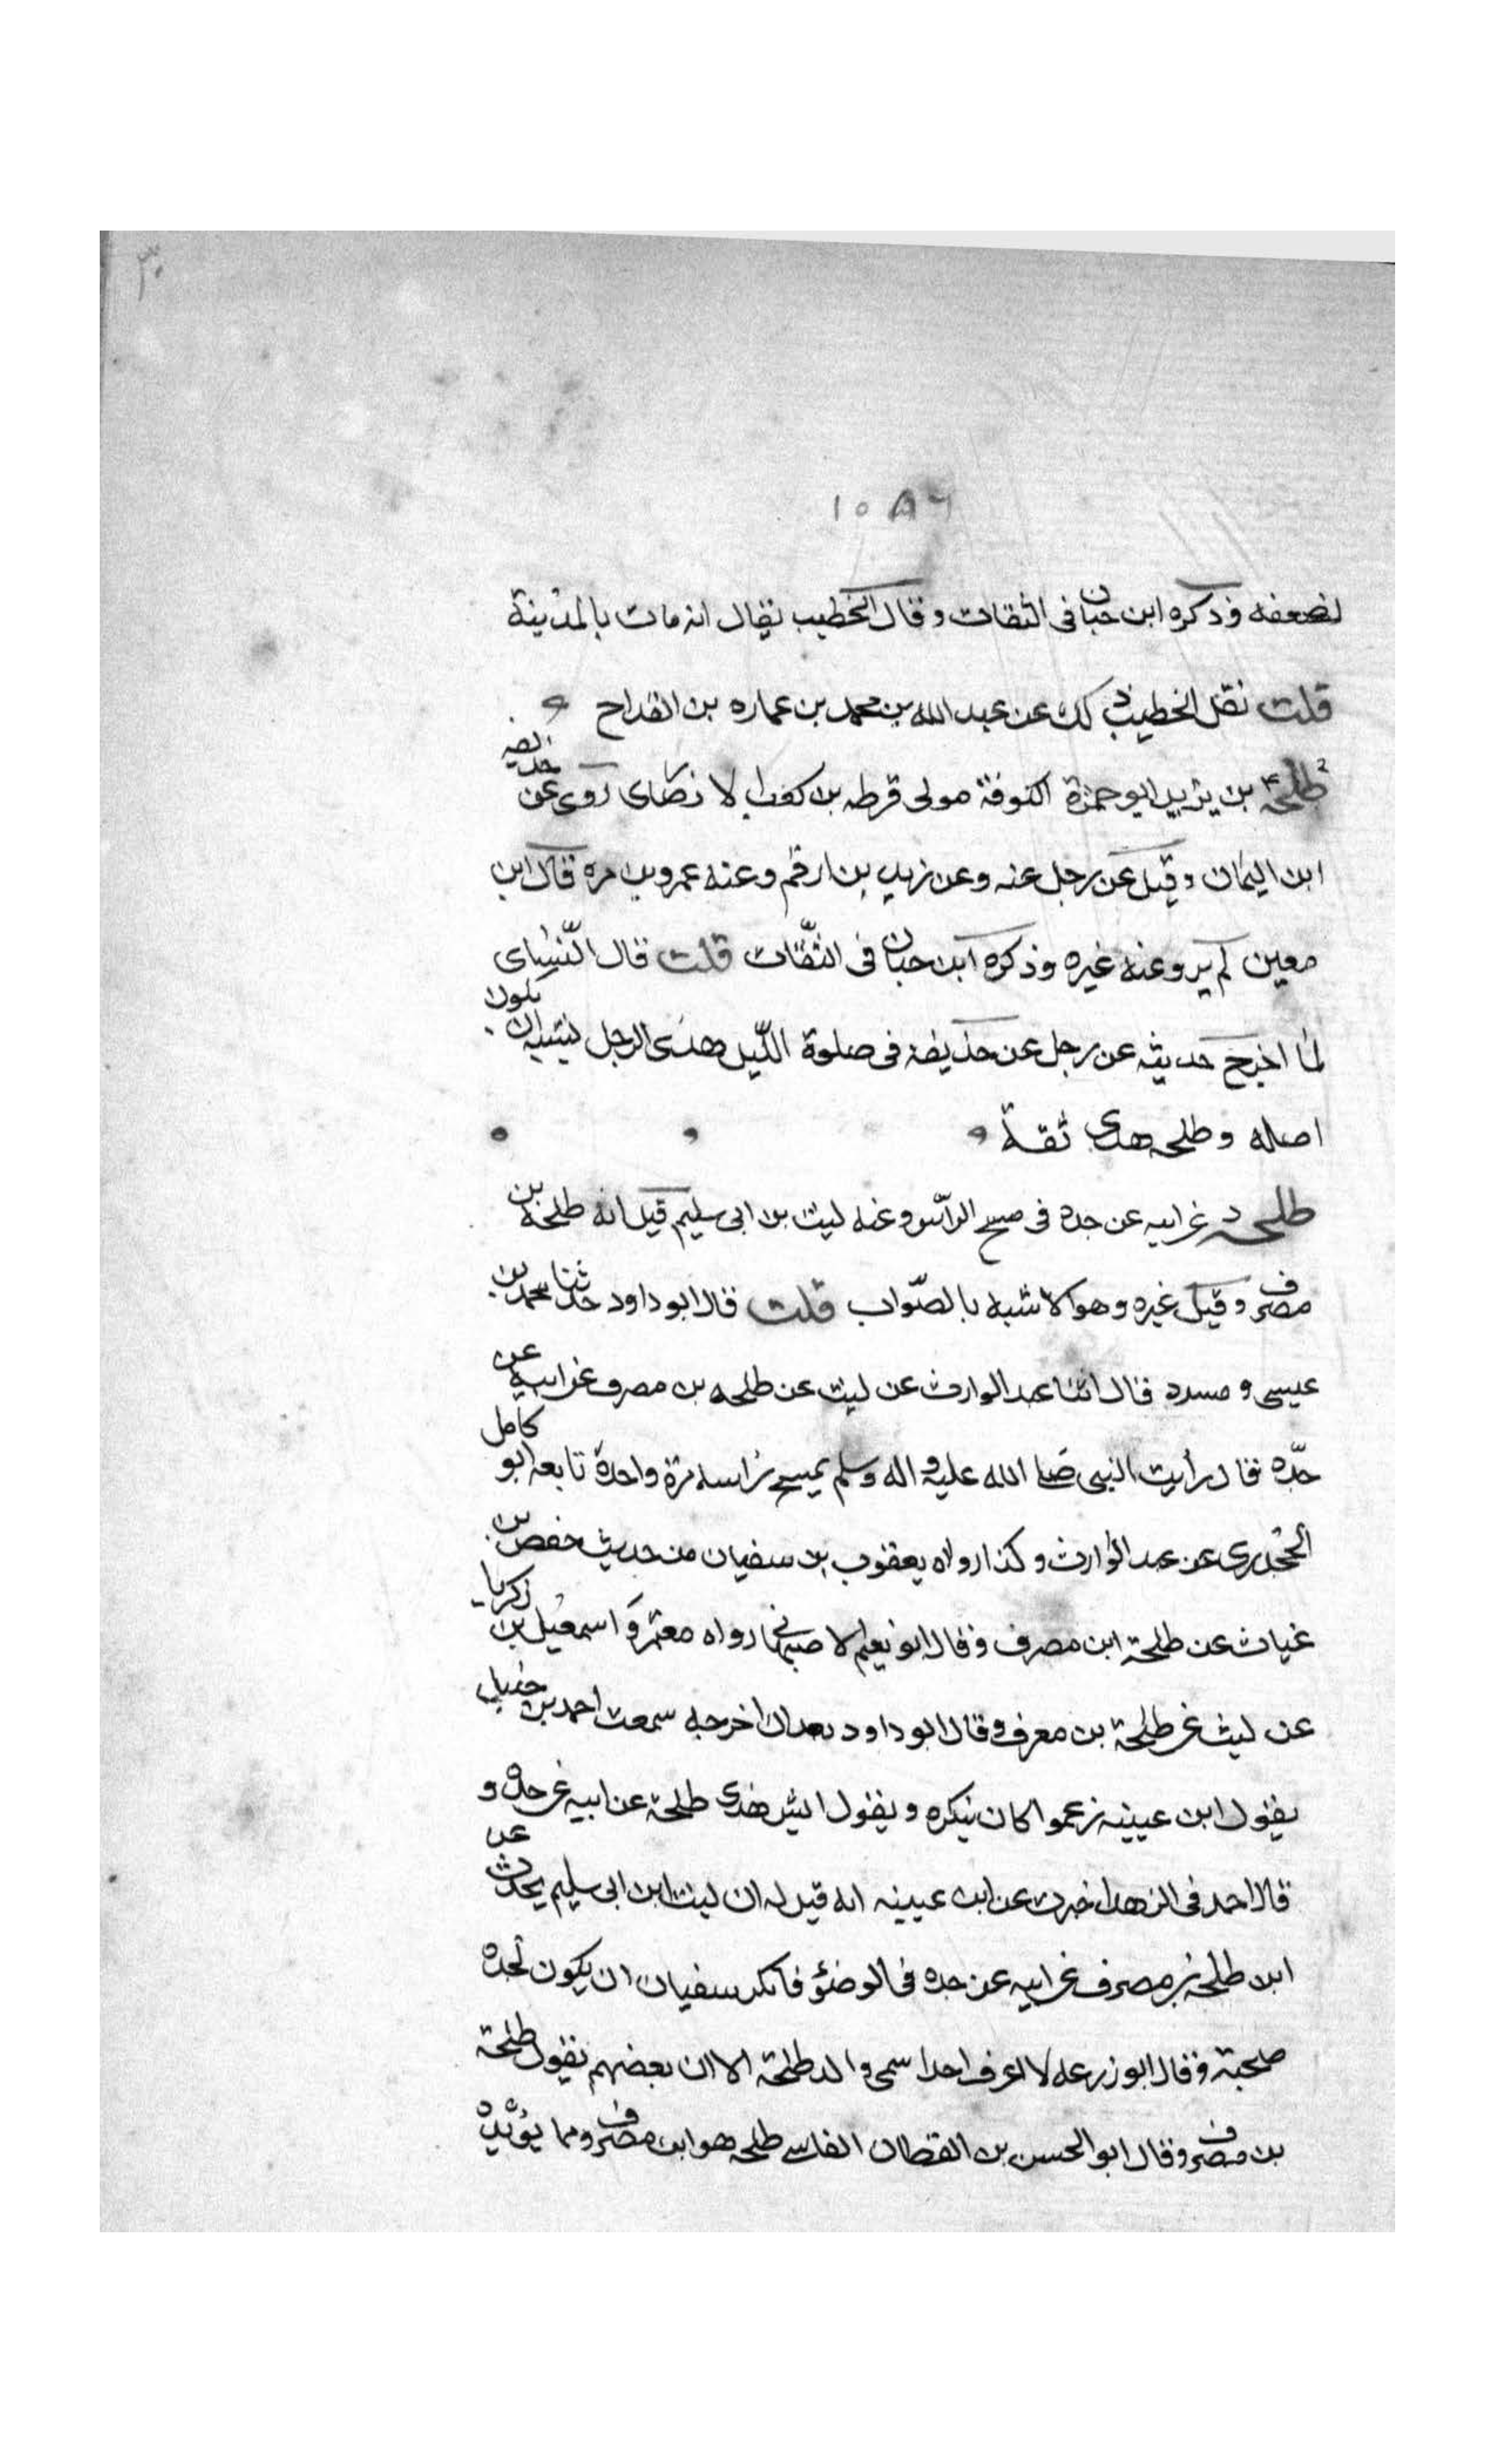 ٣٠
١٥٨٦
لضعفه وذكره ابن حبان فى الثقات وقال الخطيب يقال انه مات بالمدينة
قلت نقل الخطيب ذلك عن عبد الله بن محمد بن عماره بن القداح
طلحة بن يزيد ابو حمزة الكوفة مولى قرظه بن كعب الانصاى روى عن حذيفه
ابن اليمان وقيل عن رجل عنه وعن زيد بن ارقم وعنه عمرو بن مره قال ابن
معين لم يرو عنه غيره وذكره ابن حبان فى الثقات قلت قال النسائ
لما اخرج حديثه عن رجل عن حذيفه فى صلوة الليل هذى الرجل يشبه ان يكون
اصله وطلحه هذى ثقة
طلحه د عن ابيه عن جده فى مسح الراس وعنه ليث بن ابى سليم قيل انه طلحة بن
مصرف وقيل غيره وهو الاشبه بالصواب قلت قال ابو داود حدثنا محمد بن
عيسى و مسدد قال اثنا عبد الوارث عن ليث عن طلحه بن مصرف عن ابيه عن
جده قال رأيت النبى صلى الله عليه واله وسلم يمسح راسه مرة واحدة تابعه ابو كامل
الجحدرى عن عبد الوارث وكذا رواه يعقوب بن سفيان من حديث حفص بن
غياث عن طلحة ابن مصرف وقال ابو نعيم الاصبهانى رواه معتمر و اسمعيل بن زكريا
عن ليث عن طلحة بن مصرف وقال ابو داود بعد ان اخرجه سمعت احمد بن حنبل
يقول ابن عيينه زعموا كان ينكره ويقول ايش هذى طلحة عن ابيه عن جده و
قال احمد فى الزهد اخبرت عن ابن عيينه انه قيل له ان ليث ابن ابى سليم يحدث عن
ابن طلحة بن مصرف عن ابيه عن جده فى الوضؤ فانكر سفيان ان يكون لجده
صحبة وقال ابو زرعه لا اعرف احدا سمى والد طلحة الا ان بعضهم يقول طلحة
بن مصرف وقال ابو الحسن بن القطان الفاسى طلحه هو ابن مصرف ومما يؤيد